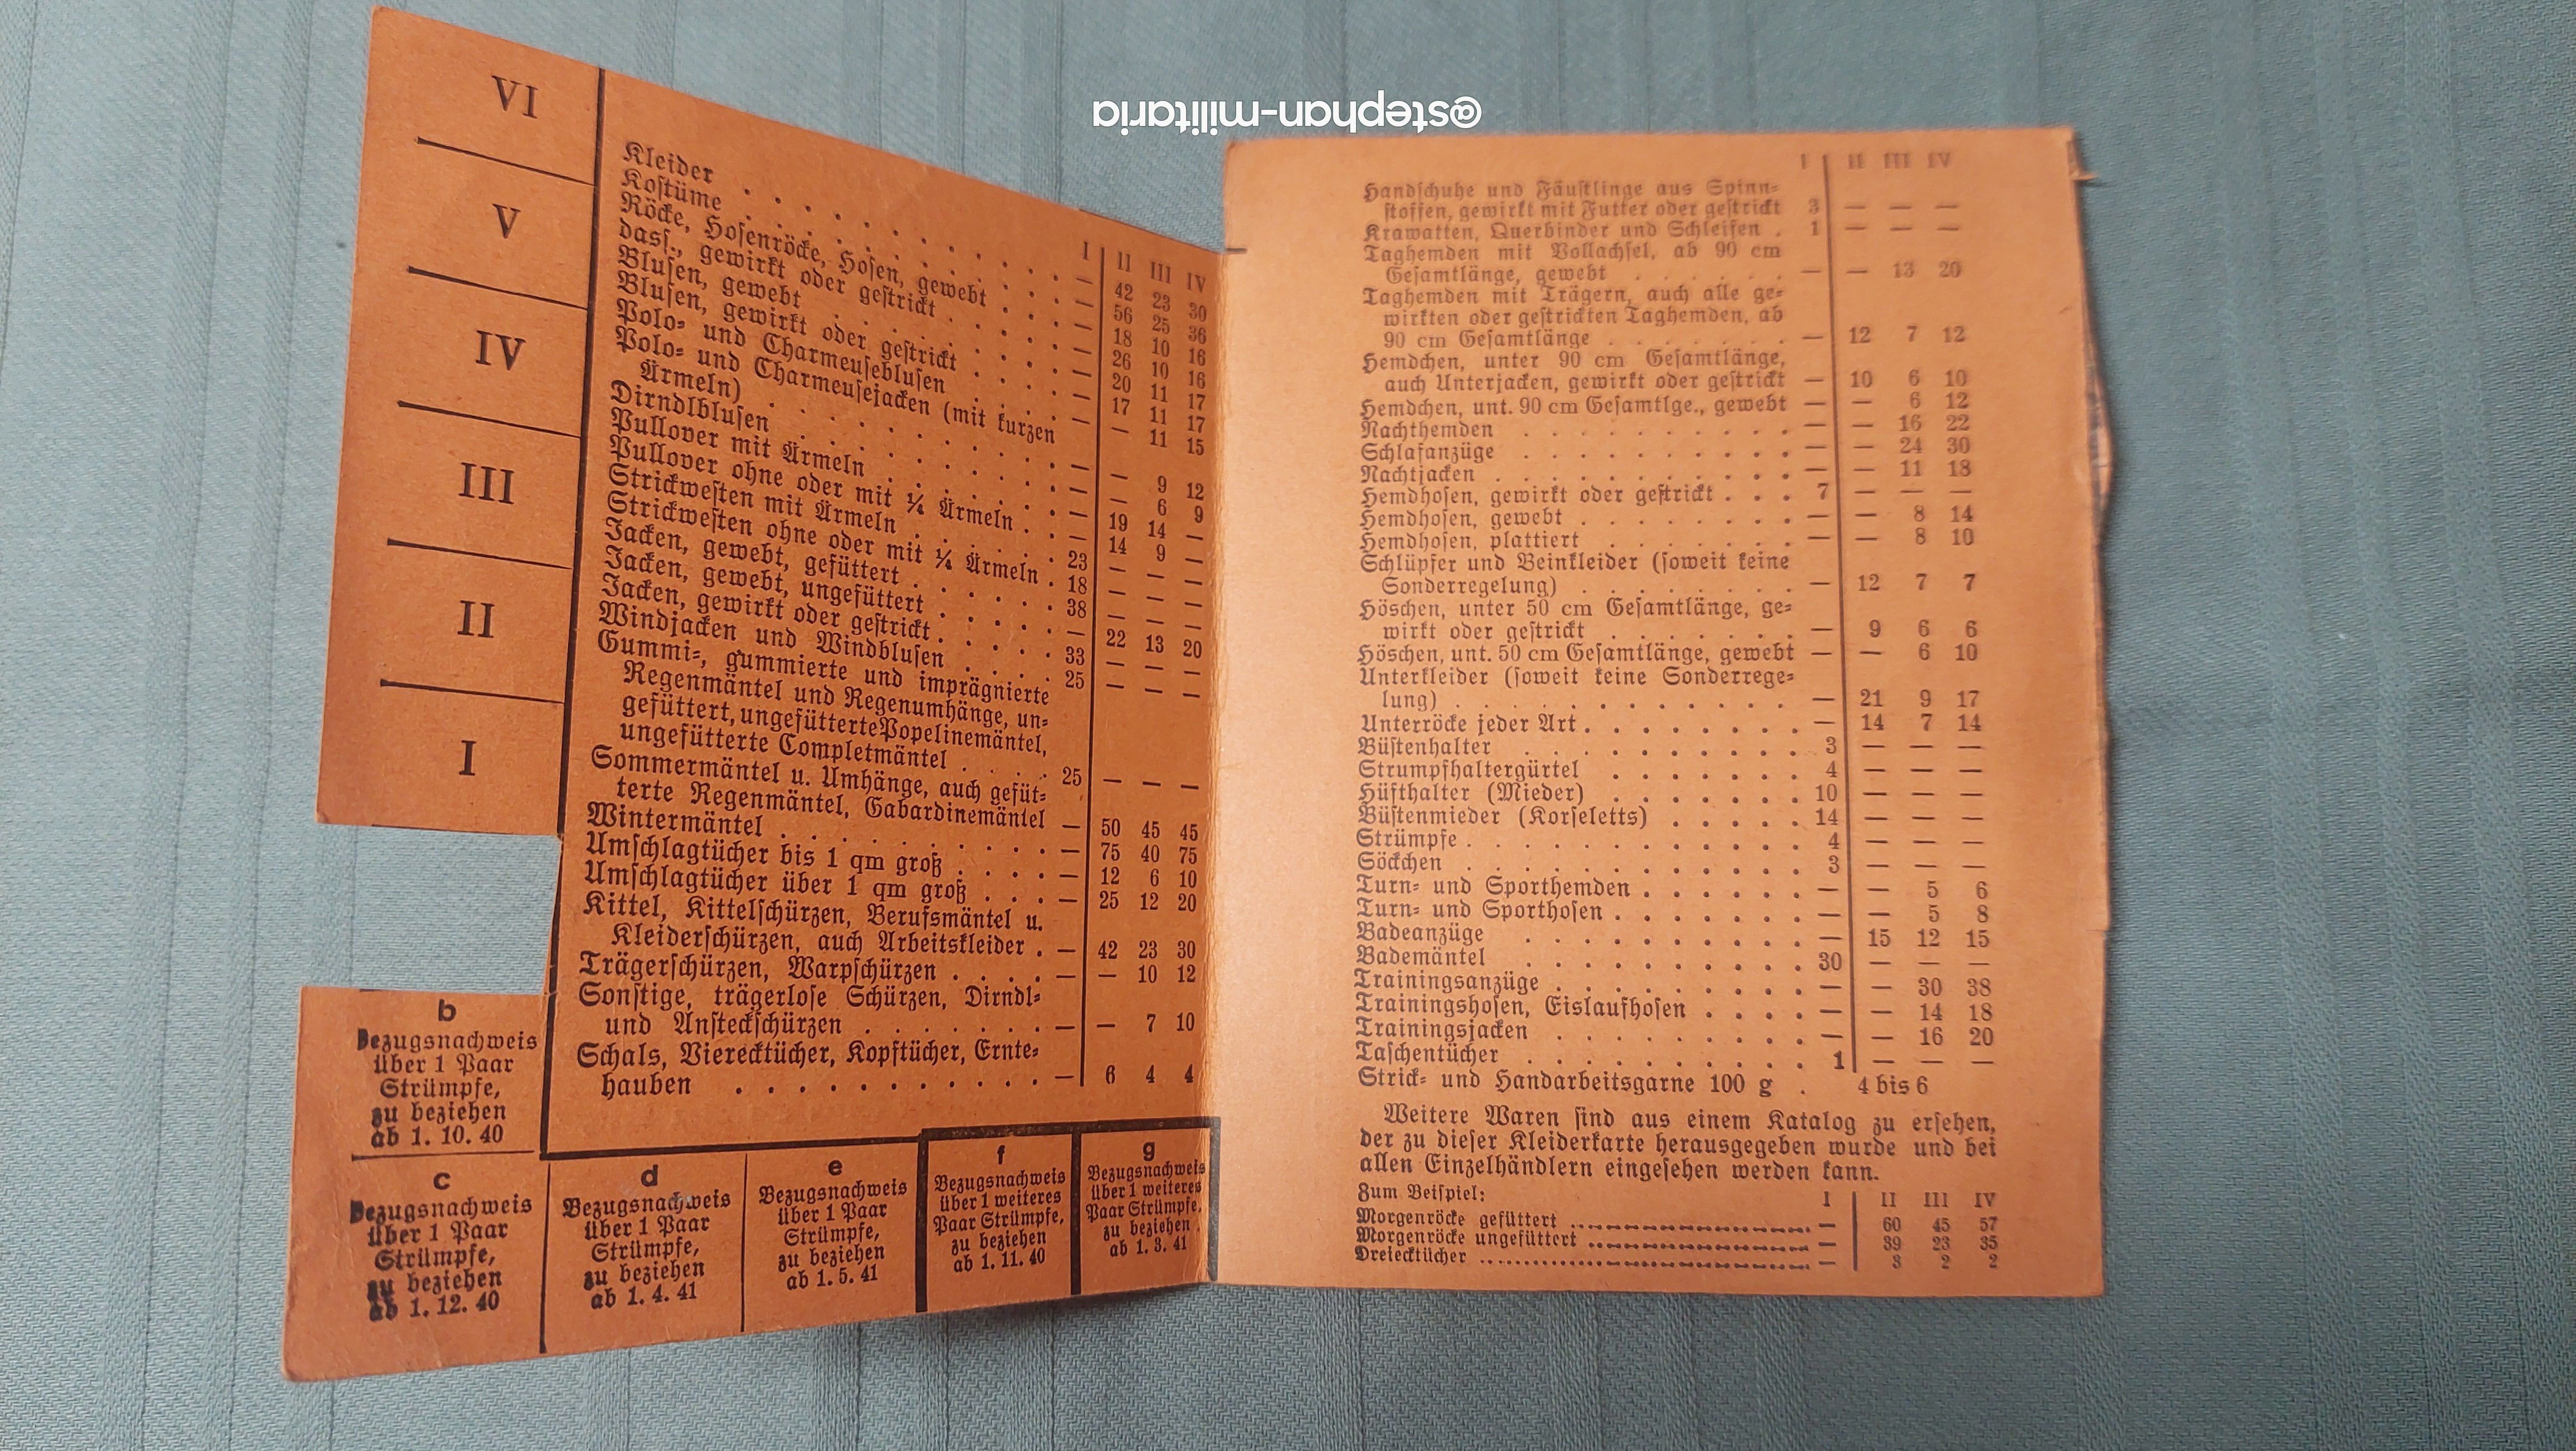 @stephan-militaria
VI
V
IV
III
II
I
I II III IV
Kleider . . . . . . . . . . . — 42 23 30
Kostüme . . . . . . . . . . . — 56 25 36
Röcke, Hosenröcke, Hosen, gewebt . . . — 18 10 16
dass., gewirkt oder gestrickt . . . . . — 26 10 16
Blusen, gewebt . . . . . . . . . — 20 11 17
Blusen, gewirkt oder gestrickt . . . . — 17 11 17
Polo- und Charmeuseblusen . . . . — — 11 15
Polo- und Charmeusejacken (mit kurzen
Ärmeln) . . . . . . . . . . — — 9 12
Dirndlblusen . . . . . . . . . — — 6 9
Pullover mit Ärmeln . . . . . . — 19 14 —
Pullover ohne oder mit ¼ Ärmeln . . — 14 9 —
Strickwesten mit Ärmeln . . . . . 23 — — —
Strickwesten ohne oder mit ¼ Ärmeln . 18 — — —
Jacken, gewebt, gefüttert . . . . . 38 — — —
Jacken, gewebt, ungefüttert . . . . — 22 13 20
Jacken, gewirkt oder gestrickt . . . . 33 — — —
Windjacken und Windblusen . . . . 25 — — —
Gummi-, gummierte und imprägnierte
Regenmäntel und Regenumhänge, un-
gefüttert, ungefütterte Popelinemäntel,
ungefütterte Completmäntel . . . . 25 — — —
Sommermäntel u. Umhänge, auch gefüt-
terte Regenmäntel, Gabardinemäntel — 50 45 45
Wintermäntel . . . . . . . . . — 75 40 75
Umschlagtücher bis 1 qm groß . . . . — 12 6 10
Umschlagtücher über 1 qm groß . . . — 25 12 20
Kittel, Kittelschürzen, Berufsmäntel u.
Kleiderschürzen, auch Arbeitskleider . — 42 23 30
Trägerschürzen, Warpschürzen . . . . — — 10 12
Sonstige, trägerlose Schürzen, Dirndl-
und Ansteckschürzen . . . . . . . — — 7 10
Schals, Vierecktücher, Kopftücher, Ernte-
hauben . . . . . . . . . . . — 6 4 4
b
Bezugsnachweis
über 1 Paar
Strümpfe,
zu beziehen
ab 1. 10. 40
c
Bezugsnachweis
über 1 Paar
Strümpfe,
zu beziehen
ab 1. 12. 40
d
Bezugsnachweis
über 1 Paar
Strümpfe,
zu beziehen
ab 1. 4. 41
e
Bezugsnachweis
über 1 Paar
Strümpfe,
zu beziehen
ab 1. 5. 41
f
Bezugsnachweis
über 1 weiteres
Paar Strümpfe,
zu beziehen
ab 1. 11. 40
g
Bezugsnachweis
über 1 weiteres
Paar Strümpfe,
zu beziehen
ab 1. 3. 41
I II III IV
Handschuhe und Fäustlinge aus Spinn-
stoffen, gewirkt mit Futter oder gestrickt 3 — — —
Krawatten, Querbinder und Schleifen . 1 — — —
Taghemden mit Vollachsel, ab 90 cm
Gesamtlänge, gewebt . . . . . . — — 13 20
Taghemden mit Trägern, auch alle ge-
wirkten oder gestrickten Taghemden, ab
90 cm Gesamtlänge . . . . . . . — 12 7 12
Hemdchen, unter 90 cm Gesamtlänge,
auch Unterjacken, gewirkt oder gestrickt — 10 6 10
Hemdchen, unt. 90 cm Gesamtlge., gewebt — — 6 12
Nachthemden . . . . . . . . . . — — 16 22
Schlafanzüge . . . . . . . . . . — — 24 30
Nachtjacken . . . . . . . . . . — — 11 18
Hemdhosen, gewirkt oder gestrickt . . . 7 — — —
Hemdhosen, gewebt . . . . . . . . — — 8 14
Hemdhosen, plattiert . . . . . . . — — 8 10
Schlüpfer und Beinkleider (soweit keine
Sonderregelung) . . . . . . . . — 12 7 7
Höschen, unter 50 cm Gesamtlänge, ge-
wirkt oder gestrickt . . . . . . . — 9 6 6
Höschen, unt. 50 cm Gesamtlänge, gewebt — — 6 10
Unterkleider (soweit keine Sonderrege-
lung) . . . . . . . . . . . . — 21 9 17
Unterröcke jeder Art . . . . . . . . — 14 7 14
Büstenhalter . . . . . . . . . . 3 — — —
Strumpfhaltergürtel . . . . . . . 4 — — —
Hüfthalter (Mieder) . . . . . . . 10 — — —
Büstenmieder (Korseletts) . . . . . 14 — — —
Strümpfe . . . . . . . . . . . . 4 — — —
Söckchen . . . . . . . . . . . . 3 — — —
Turn- und Sporthemden . . . . . . — — 5 6
Turn- und Sporthosen . . . . . . . — — 5 8
Badeanzüge . . . . . . . . . . — 15 12 15
Bademäntel . . . . . . . . . . 30 — — —
Trainingsanzüge . . . . . . . . . — — 30 38
Trainingshosen, Eislaufhosen . . . . — — 14 18
Trainingsjacken . . . . . . . . . — — 16 20
Taschentücher . . . . . . . . . . 1 — — —
Strick- und Handarbeitsgarne 100 g . 4 bis 6
Weitere Waren sind aus einem Katalog zu ersehen,
der zu dieser Kleiderkarte herausgegeben wurde und bei
allen Einzelhändlern eingesehen werden kann.
Zum Beispiel: I II III IV
Morgenröcke gefüttert ........ — 60 45 57
Morgenröcke ungefüttert ........ — 39 23 35
Dreiecktücher ........ — 3 2 2